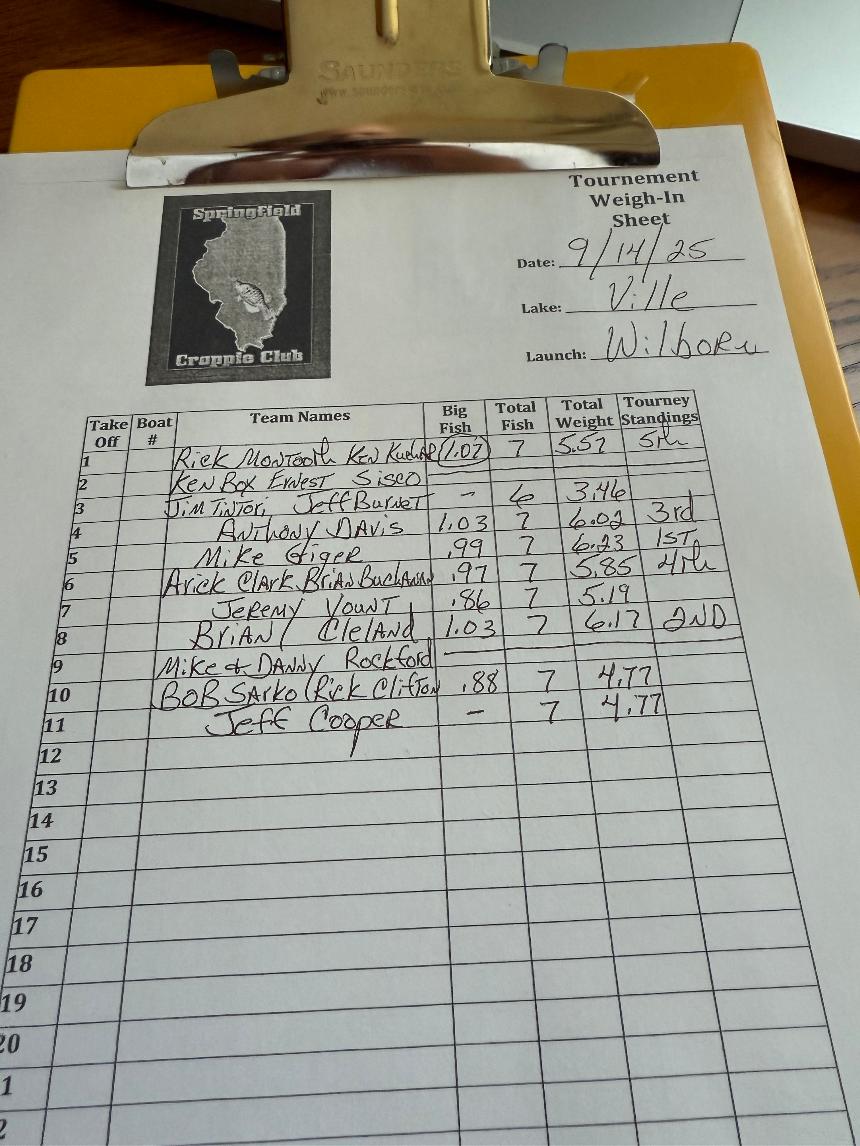 SAUNDERS
Springfield
Crappie Club
Tournement
Weigh-In
Sheet
Date: 9/14/25
Lake: Ville
Launch: Wilborn
Take Off Boat # Team Names Big Fish Total Fish Total Weight Tourney Standings
1 Rick Montooth Ken 1.07 7 5.57 5th
2 Ken Box Ernest Sisco
3 Jim Tintori, Jeff Burnet - 6 3.46
4 Anthony Davis 1.03 7 6.02 3rd
5 Mike Giger .99 7 6.23 1ST
6 Arick Clark Brian Buchannan .97 7 5.85 4th
7 Jeremy Yount .86 7 5.19
8 Brian Cleland 1.03 7 6.17 2ND
9 Mike & Danny Rockford
10 Bob Sarko / Rick Clifton .88 7 4.77
11 Jeff Cooper - 7 4.77
12
13
14
15
16
17
18
19
20
1
2